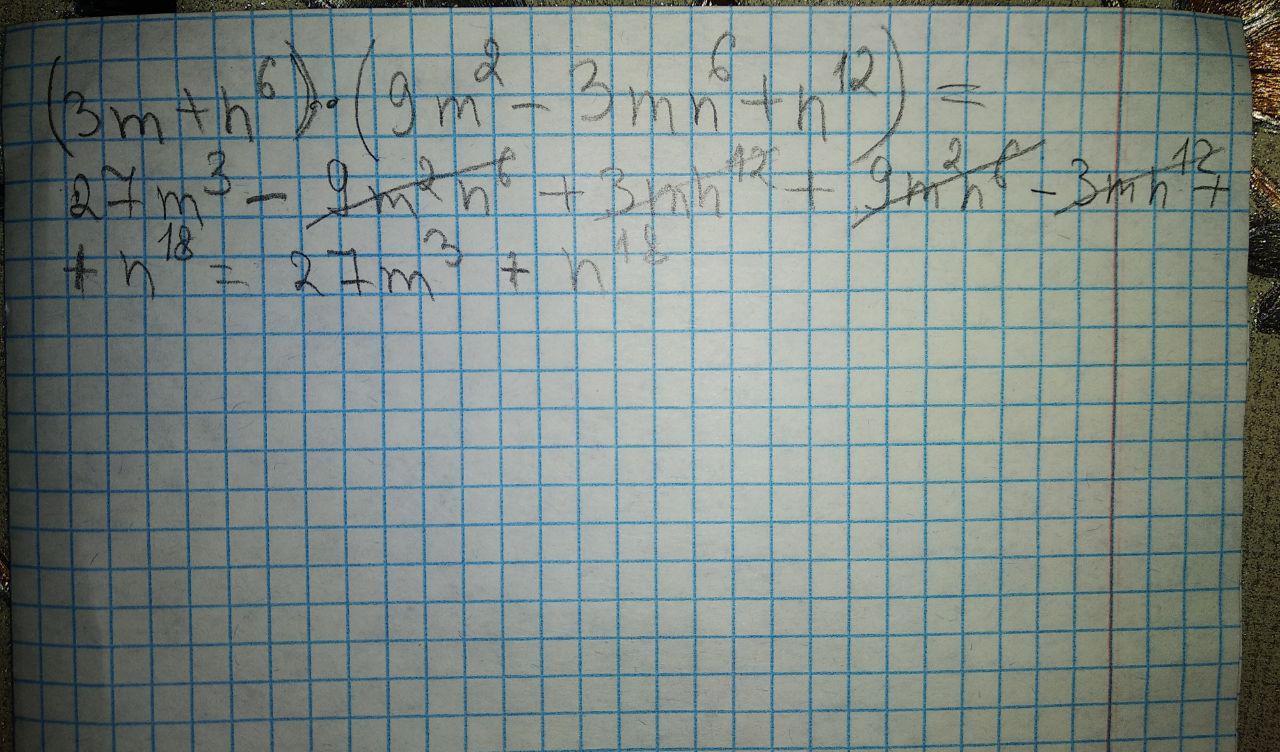 (3m+n⁶)·(9m²-3mn⁶+n¹²)=
27m³-9m²n⁶+3mn¹²+9m²n⁶-3mn¹²+
+n¹⁸=27m³+n¹⁸